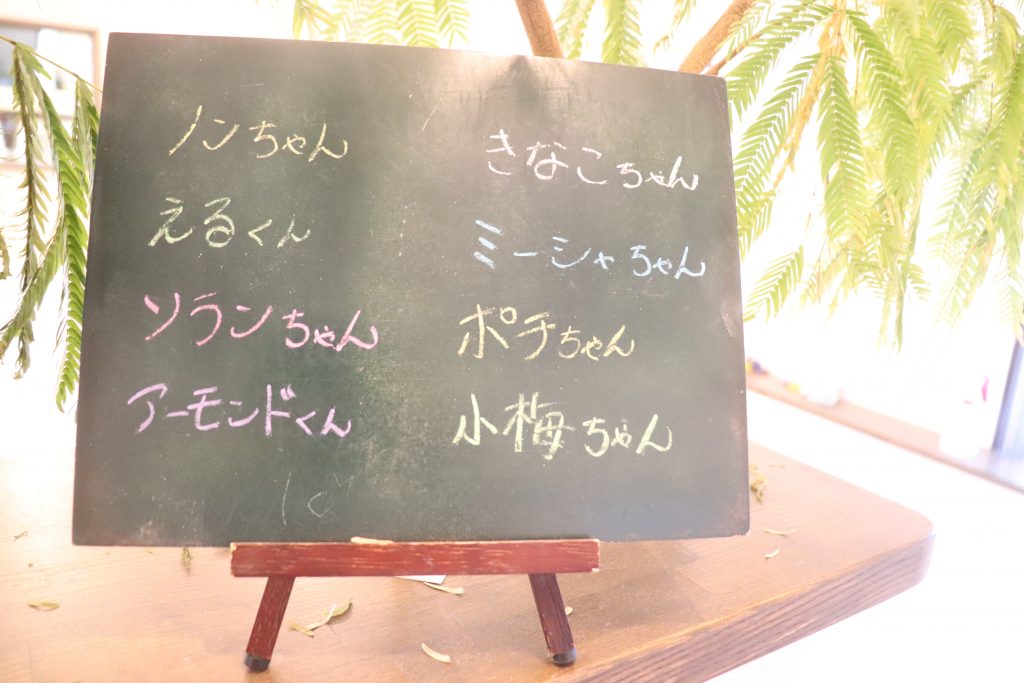 ノンちゃん
えるくん
ソランちゃん
アーモンドくん
きなこちゃん
ミーシャちゃん
ポチちゃん
小梅ちゃん